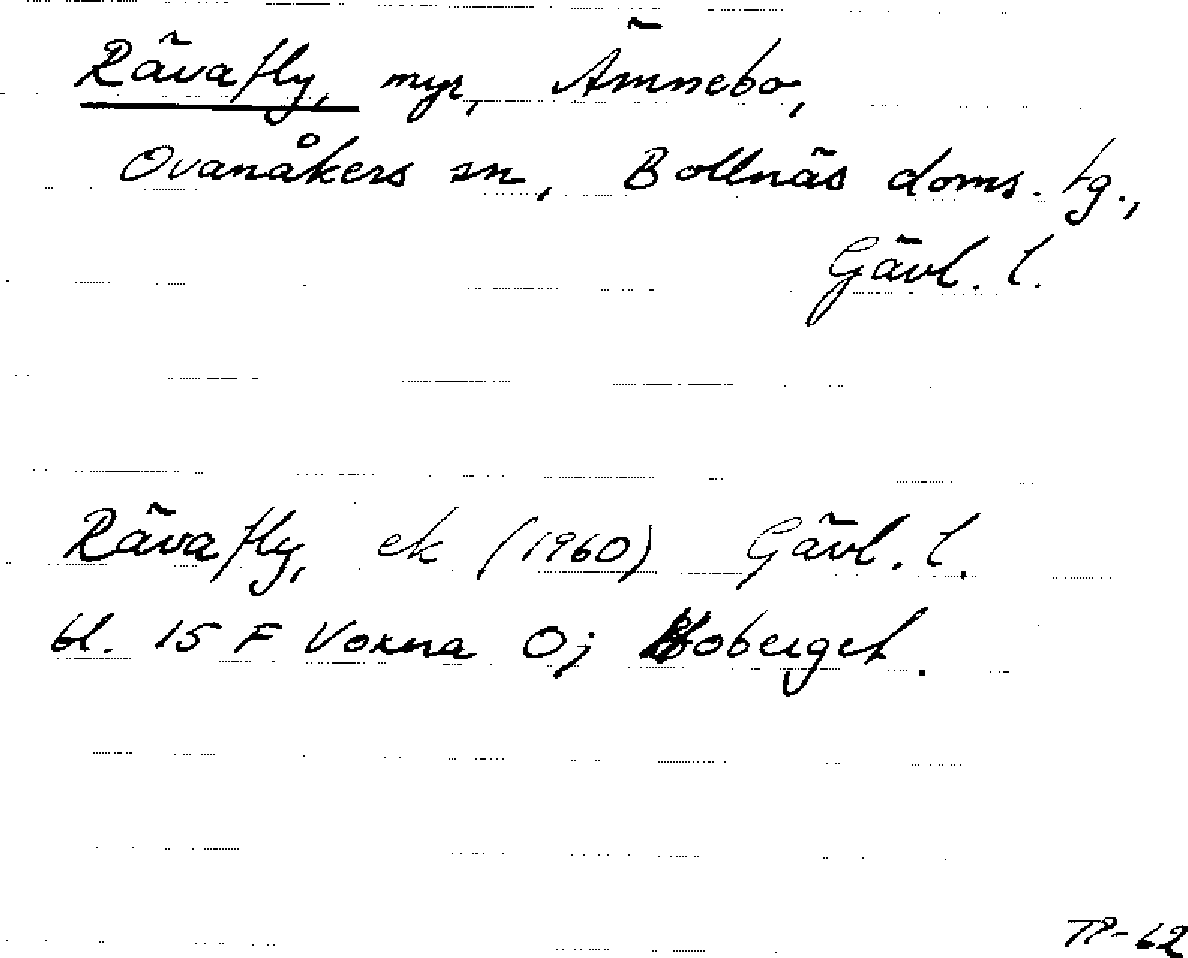 Rävafly, myr, Ämnebo,
Ovanåkers sn, Bollnäs doms. tg.,
Gävl. l.
Rävafly, ek (1960) Gävl. l.
bl. 15 F Voxna O; Hoberget.
TP-62